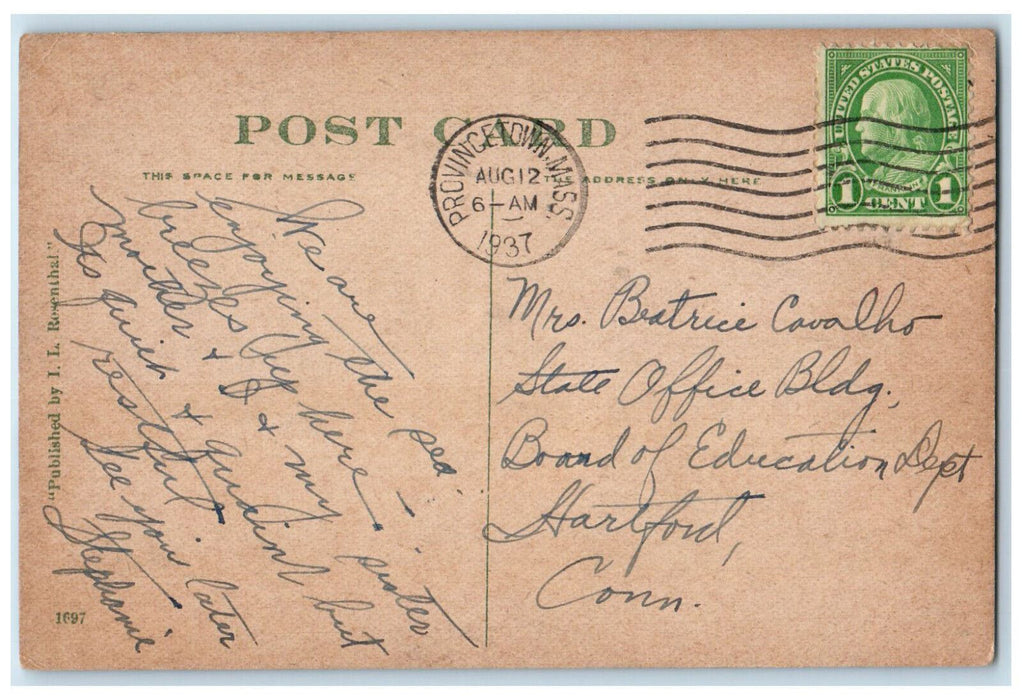 POST CARD
THIS SPACE FOR MESSAGE
THE ADDRESS ONLY HERE
PROVINCETOWN, MASS.
AUG 12
6-AM
1937
UNITED STATES POSTAGE
FRANKLIN
1 CENT 1
We are
enjoying the sea
breezes by here.
mother & I & my sister
& but
So quiet & restful.
See you later
Stephanie
Mrs. Beatrice Cavalho
State Office Bldg.,
Board of Education Dept
Hartford,
Conn.
"Published by J. L. Rosenthal"
1697